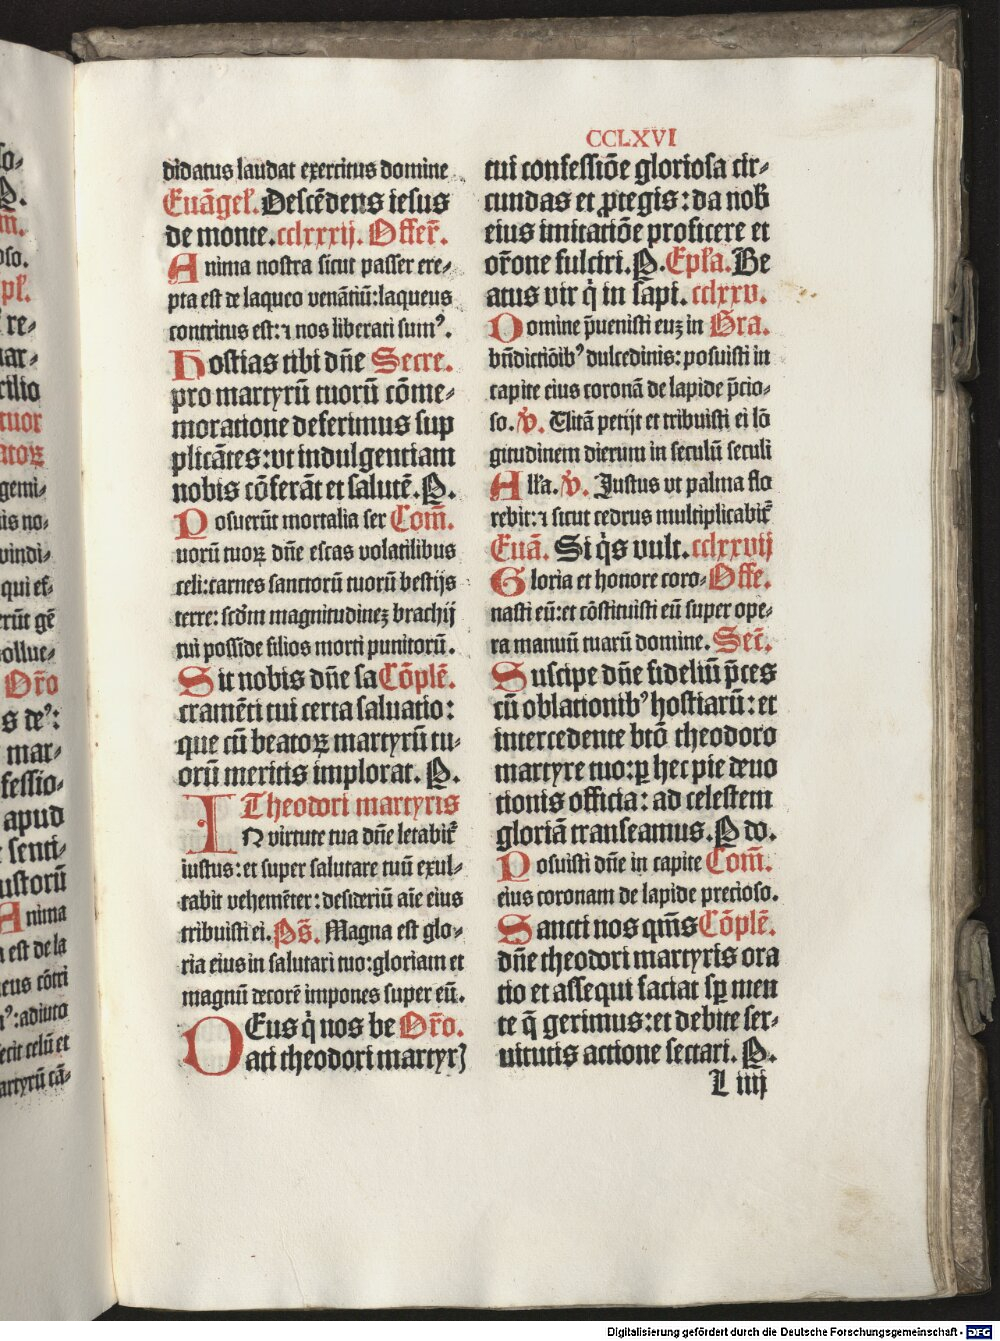 CCLXVI
didatus laudat exercitus domine
Euãgeł. Descẽdens iesus
de monte. cclxxxij. Offer̃.
Anima nostra sicut passer ere⸗
pta est de laqueo venãtiũ: laqueus
contritus est: ⁊ nos liberati sumꝰ.
Hostias tibi dñe Secre.
pro martyrũ tuorũ cõme⸗
moratione deferimus sup
plicãtes: vt indulgentiam
nobis cõferãt et salutẽ. P.
Posuerũt mortalia ser Com̃.
uorũ tuoꝝ dñe escas volatilibus
celi: carnes sanctorũ tuorũ bestijs
terre: scđm magnitudineꝫ brachij
tui posside filios morti punitorũ.
Sit nobis dñe sa Cõplẽ.
cramẽti tui certa saluatio:
que cũ beatoꝝ martyrũ tu⸗
orũ meritis implorat. P.
Theodori martyris
IN virtute tua dñe letabit᷑
iustus: et super salutare tuũ exul⸗
tabit vehemẽter: desideriũ aĩe eius
tribuisti ei. Ps̃. Magna est glo⸗
ria eius in salutari tuo: gloriam et
magnũ decorẽ impones super eũ.
DEus q̇ nos be Or̃o.
ati theodori martyrꝫ
tui confessiõe gloriosa cir⸗
cundas et ꝓtegis: da nob̃
eius imitatiõe proficere et
or̃one fulciri. P. Epła. Be
atus vir q̇ in sapi. cclxxv.
Domine p̃uenisti euꝫ in Gra.
bñdictiõibꝰ dulcedinis: posuisti in
capite eius coronã de lapide p̃cio⸗
so. V̷. Vitã petijt et tribuisti ei lõ
gitudinem dierum in seculũ seculi
Alła. V̷. Justus vt palma flo
rebit: ⁊ sicut cedrus multiplicabit᷑
Euã. Si q̇s vult. cclxxvij
Gloria et honore coro⸗ Offe.
nasti eũ: et cõstituisti eũ super ope⸗
ra manuũ tuarũ domine. Secr̃.
Suscipe dñe fideliũ p̃ces
cũ oblationibꝰ hostiarũ: et
intercedente btõ theodoro
martyre tuo: ꝑ hec pie deuo
tionis officia: ad celestem
gloriã transeamus. P do.
Posuisti dñe in capite Com̃.
eius coronam de lapide precioso.
Sancti nos qm̃s Cõplẽ.
dñe theodori martyris ora
tio et assequi faciat sꝑ men
te q̃ gerimus: et debite ser⸗
uitutis actione sectari. P.
L iiij
Digitalisierung gefördert durch die Deutsche Forschungsgemeinschaft - DFG